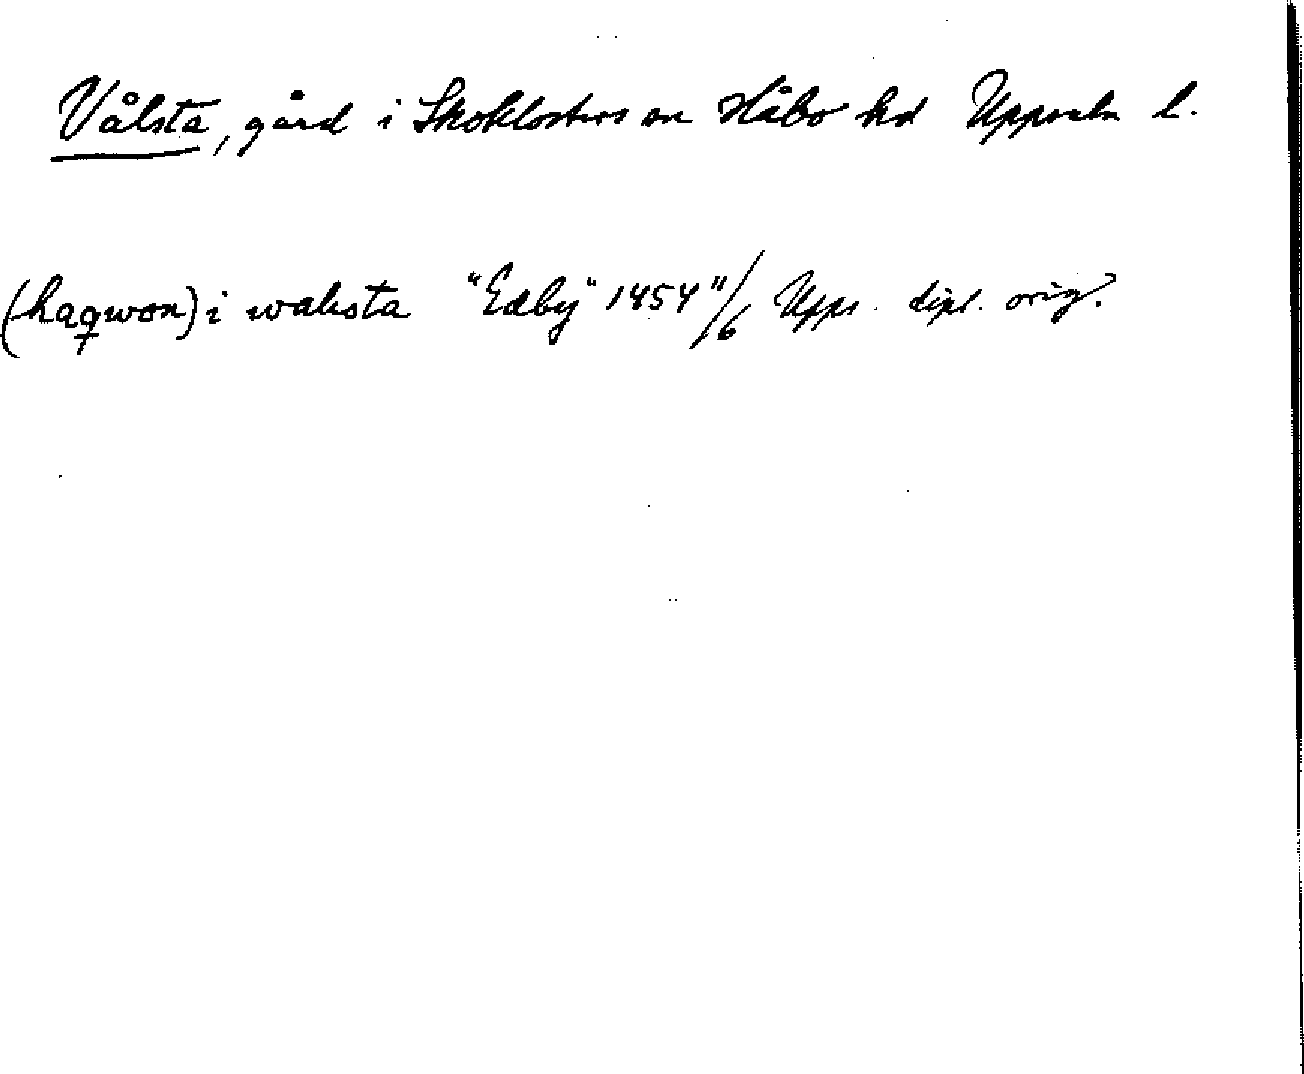 Vålsta, gård i Skoklosters sn Håbo hd Uppsala l.
(haqwon) i walsta "Edby" 1454 11/6 Upps. dipl. orig.